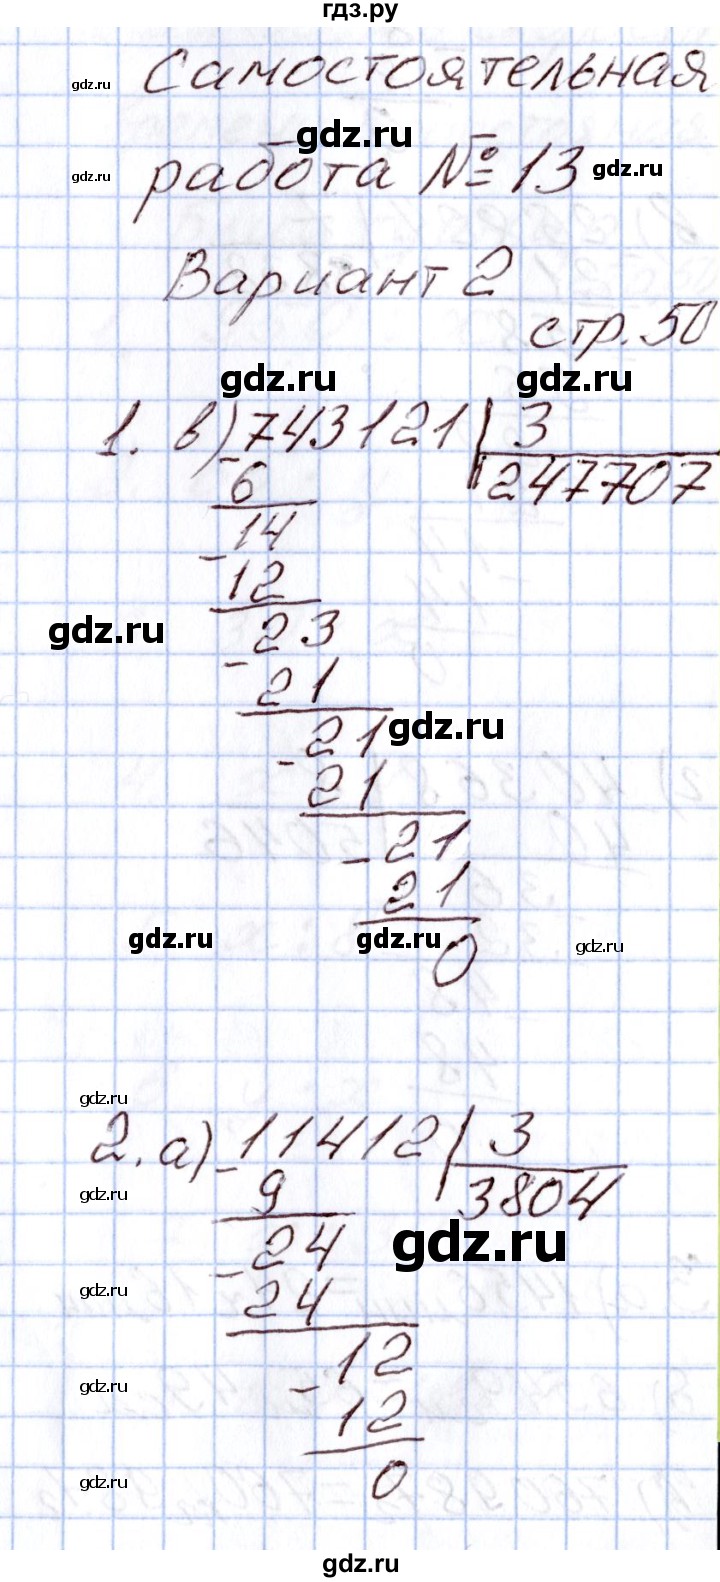 гдз.ру
Самостоятельная
gdz.ru
gdz.ru
работа № 13
gdz.ru
gdz.ru
Вариант 2
стр. 50
gdz.ru
gdz.ru
1. в) 743121 | 3
- 6
247707
14
- 12
gdz.ru
23
- 21
gdz.ru
21
- 21
- 21
21
gdz.ru
gdz.ru
0
gdz.ru
gdz.ru
2. а) - 11412 | 3
9
3804
gdz.ru
gdz.ru
- 24
24
gdz.ru
12
gdz.ru
- 12
0
gdz.ru
gdz.ru